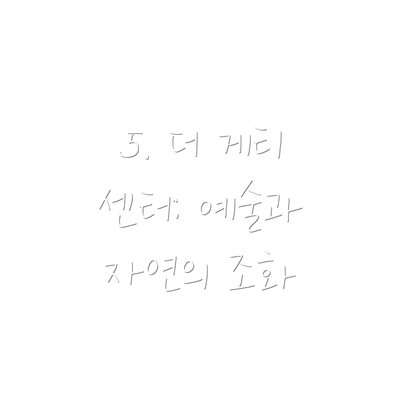 5. 더 게티
센터: 예술과
자연의 조화